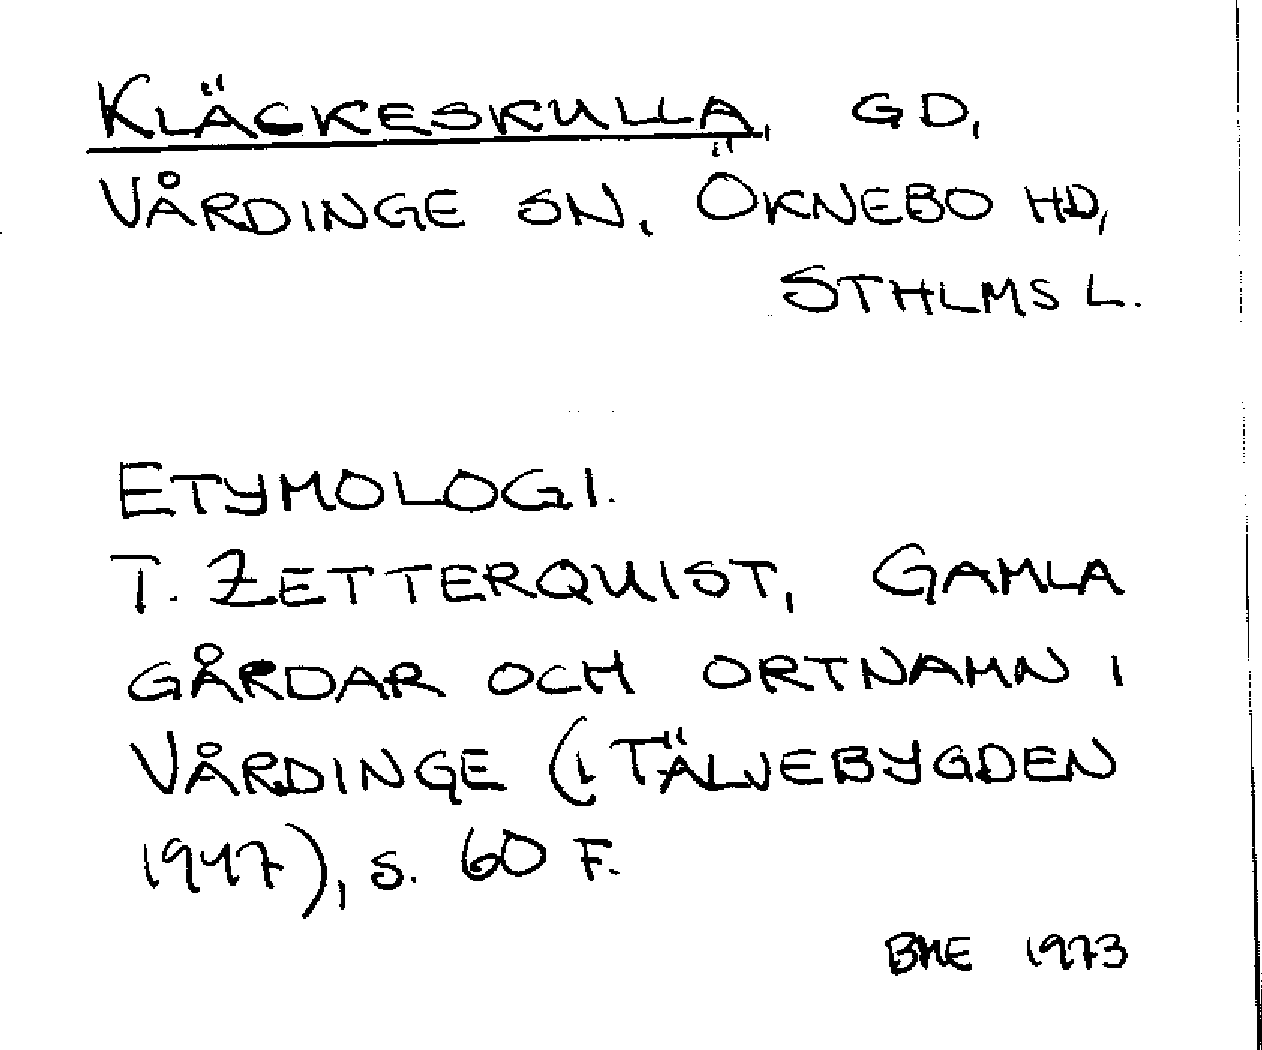 KLÄCKESKULLA, GD,
VÅRDINGE SN, ÖKNEBO HD,
STHLMS L.
ETYMOLOGI.
T. ZETTERQUIST, GAMLA
GÅRDAR OCH ORTNAMN I
VÅRDINGE (I TÄLJEBYGDEN
1947), S. 60 F.
BME 1973